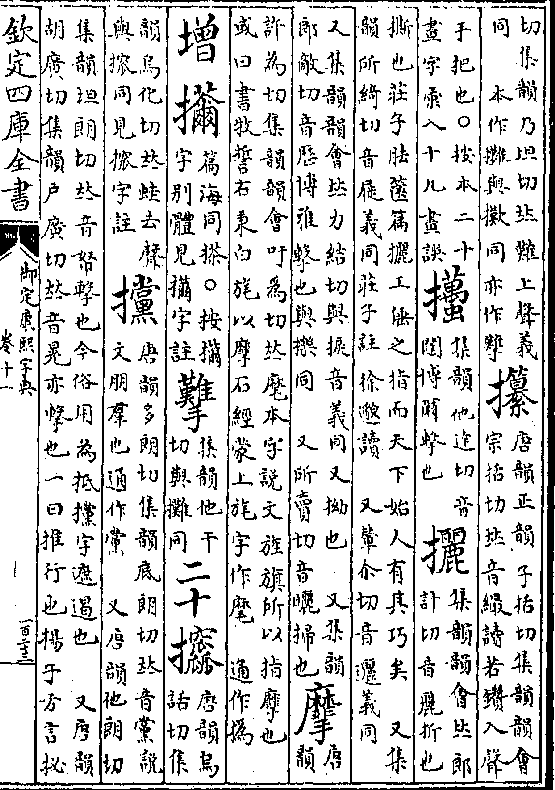 切集韻乃坦切𠀤難上聲義
同　本作攤與擹同亦作𢺋
攥
唐韻正韻子括切集韻韻會
宗括切𠀤音繓讀若鑽入聲
手把也○按本二十
畫字彙入十九畫誤
集韻他達切音
闥博雅擊也
攦
集韻韻會𠀤郎
計切音麗折也
撕也莊子胠篋篇攦工倕之指而天下始人有其巧矣　又集
韻所綺切音屣義同莊子註徐邈讀　又輦尒切音邐義同
又集韻韻會𠀤力結切與捩音義同又拗也　又集韻
郎敵切音歷博雅擊也與擽同　又所賣切音曬掃也
唐
韻
許為切集韻韻會吁為切𠀤麾本字說文旌旗所以指摩也
或曰書牧誓右秉白旄以摩石經蒙上旄字作麾　通作撝
增
篇海同搽○按
字別體見字註
𢺋
集韻他干
切與攤同
二十
攨
唐韻烏
話切集
韻烏化切𠀤蛙去聲
與搲同見搲字註
攩
唐韻多朗切集韻底朗切𠀤音黨說
文朋羣也通作黨　又唐韻他朗切
集韻坦朗切𠀤音帑擊也今俗用為抵攩字遮遏也　又唐韻
胡廣切集韻戶廣切𠀤音晃亦擊也一曰推行也揚子方言㧙
欽定四庫全書
御定康熙字典
卷十一